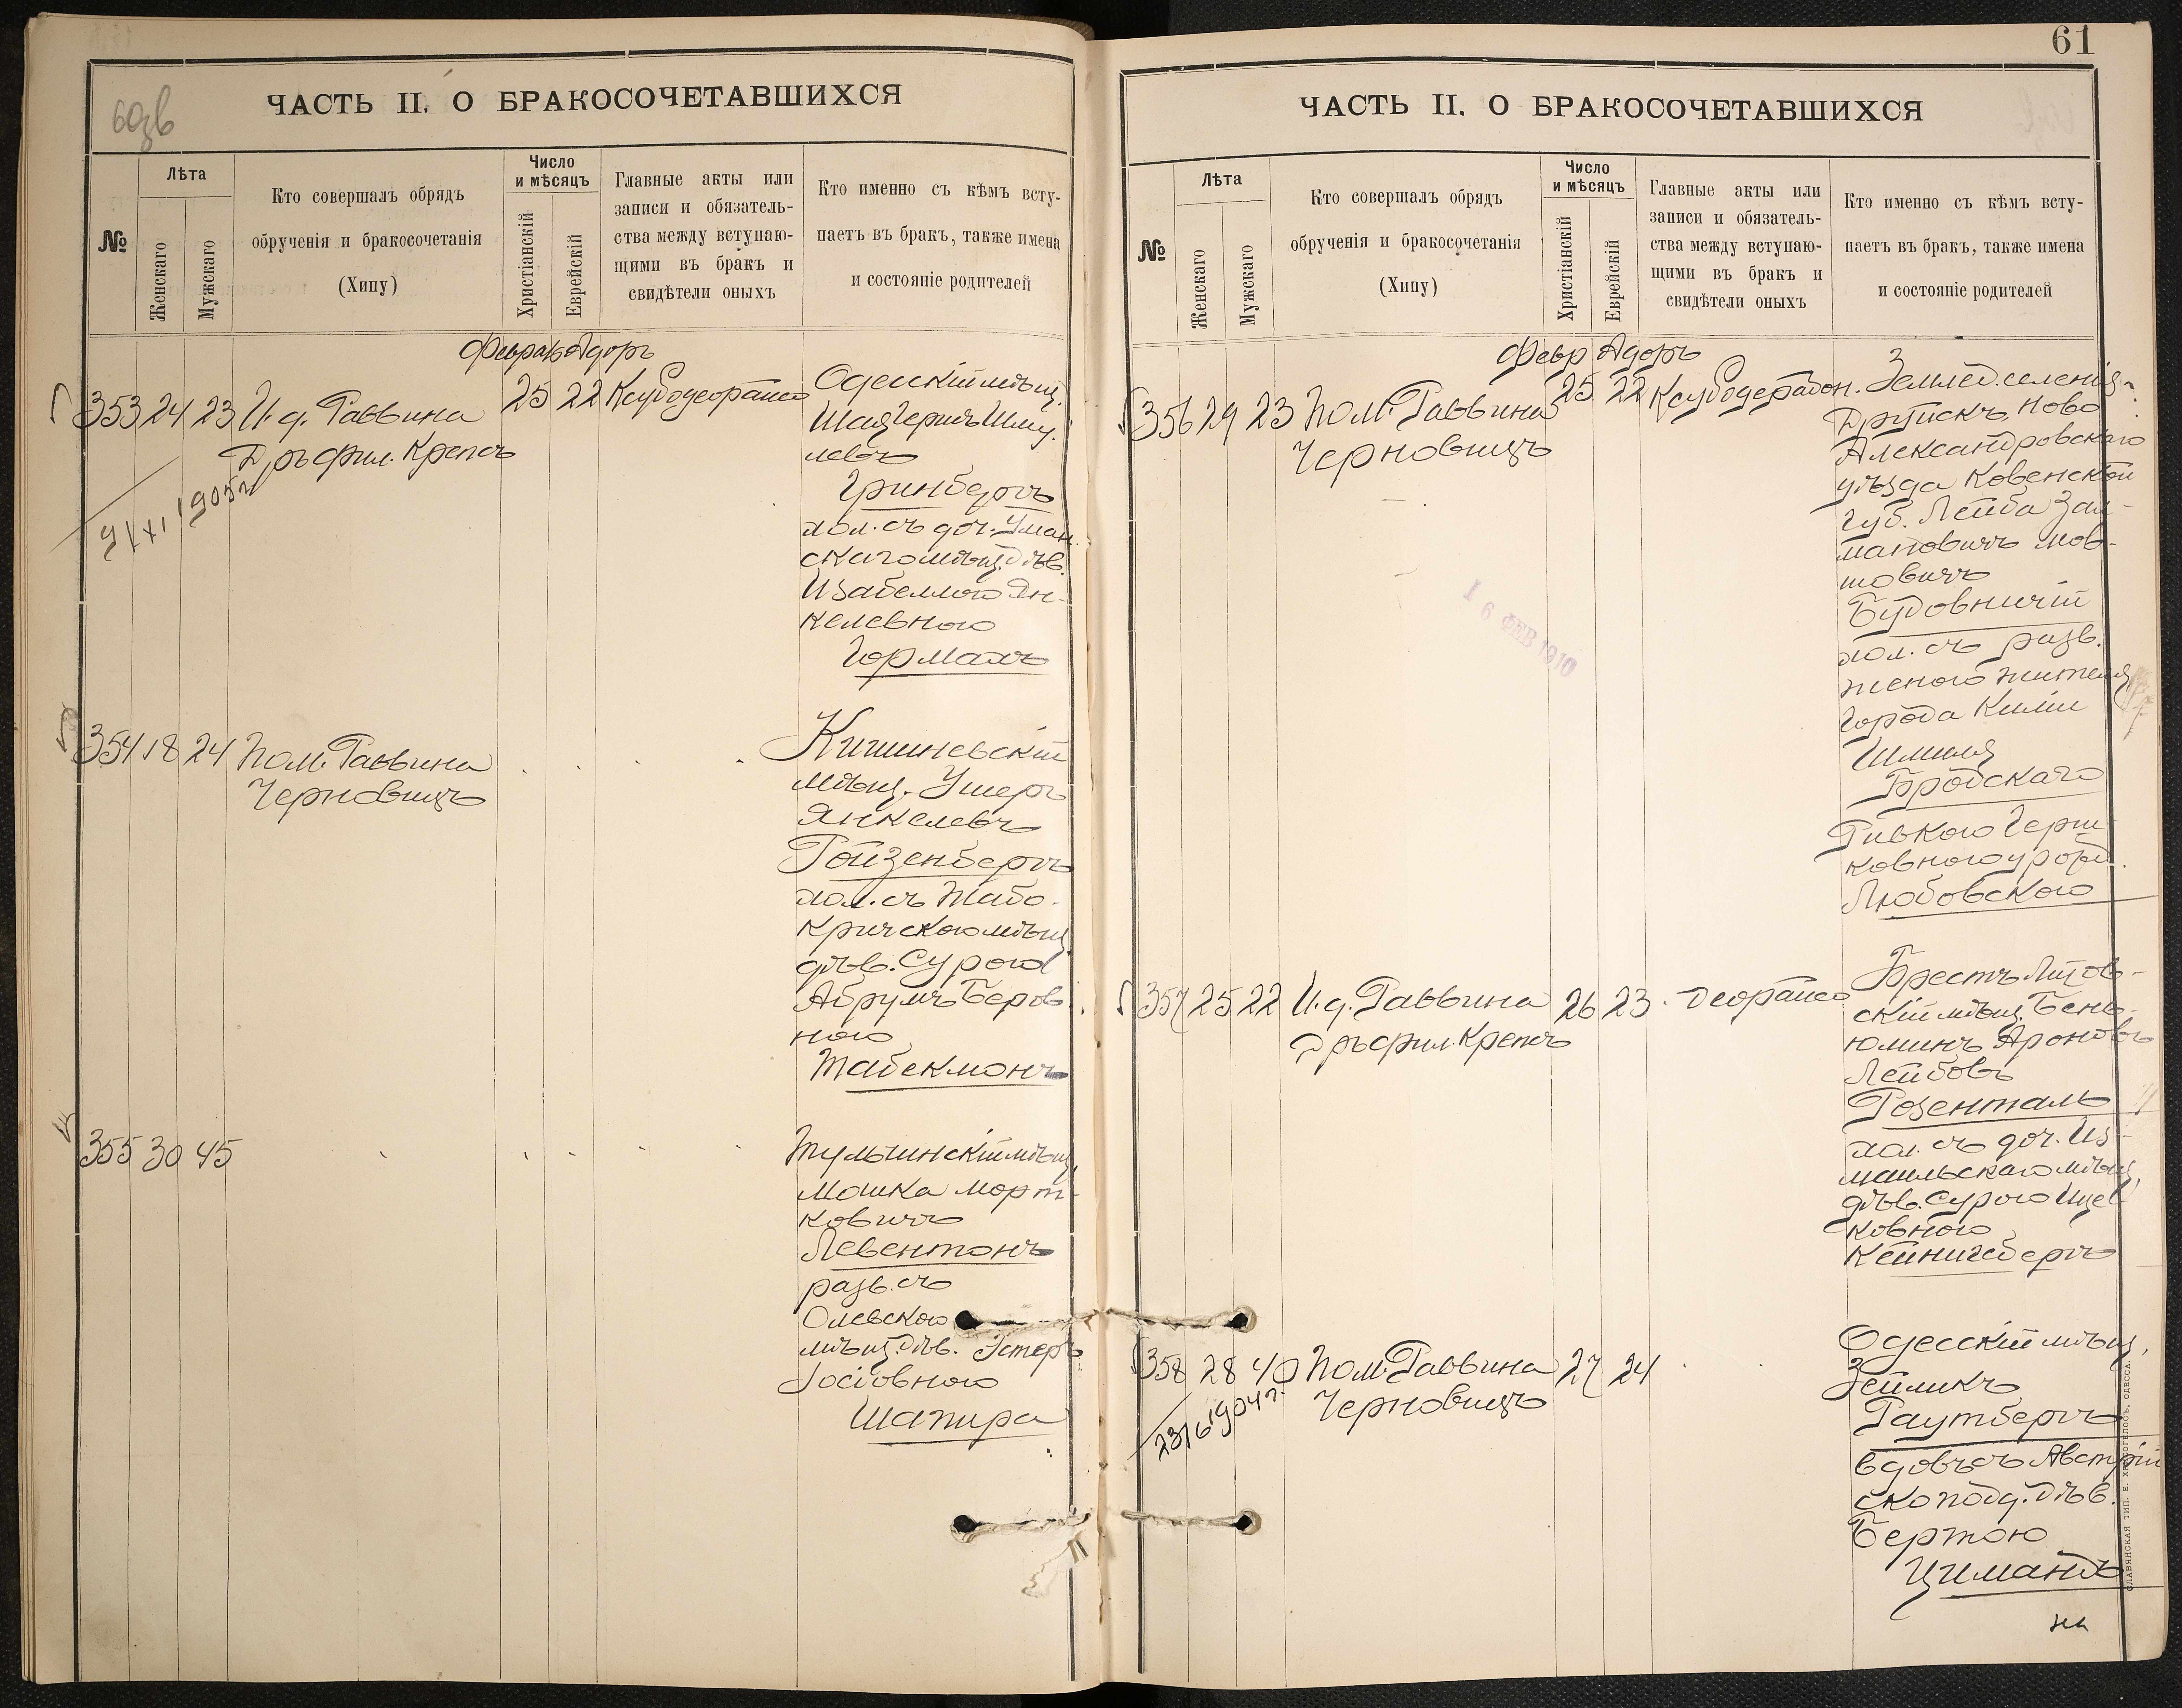 60об
ЧАСТЬ II. О БРАКОСОЧЕТАВШИХСЯ
№
Лѣта
Женскаго
Мужскаго
Кто совершалъ обрядъ
обрученія и бракосочетанія
(Хипу)
Число
и мѣсяцъ
Христіанскій
Еврейскій
Главные акты или
записи и обязатель-
ства между вступаю-
щими въ бракъ и
свидѣтели оныхъ
Кто именно съ кѣмъ всту-
паетъ въ бракъ, также имена
и состояніе родителей
Февраль Адоръ
353 24 23 И. д. Раввина 25 22
Дръ фил. Крепсъ
1905г
Одесскій мѣщ.
Шая Гершъ Шму-
левъ
Гринбергъ
хол. съ доч. Уман-
скаго мѣщ. дѣв.
Изабеллою Ян-
келевною
Горманъ
354 18 24 Пом. Раввина
Черновицъ
Кишиневскій
мѣщ. Ушеръ
Янкелевъ
Ройзенбергъ
хол. съ Жабо-
кричскою мѣщ.
дѣв. Сурою
Абрумъ Беров-
ною
Табекмонъ
355 30 45
Тульчинскій мѣщ.
Мошка Морт-
ковичъ
Левентонъ
разв. съ
Олевскою
мѣщ. дѣв. Эстеръ
Іосіовною
Шапира
61
ЧАСТЬ II. О БРАКОСОЧЕТАВШИХСЯ
№
Лѣта
Женскаго
Мужскаго
Кто совершалъ обрядъ
обрученія и бракосочетанія
(Хипу)
Число
и мѣсяцъ
Христіанскій
Еврейскій
Главные акты или
записи и обязатель-
ства между вступаю-
щими въ бракъ и
свидѣтели оныхъ
Кто именно съ кѣмъ всту-
паетъ въ бракъ, также имена
и состояніе родителей
Февр Адоръ
356 29 23 Пом. Раввина 25 22
Черновицъ
Землед. селенія
Ново
Александровскаго
уѣзда Ковенской
губ. Лейба Зал-
мановичъ Мов-
шовичъ
Будовничій
хол. съ разв.
женою жителя
города Киліи
Шмиля
Бродскаго
Ривкою Герш-
ковною урожд.
Любовскою
16 ФЕВ 1910
357 25 22 И. д. Раввина 26 23
Дръ фил. Крепсъ
Брестъ Литов-
скій мѣщ. Бень-
юминъ Ароновъ
Лейбовъ
Розенталь
хол. съ доч. Из-
маильскаго мѣщ.
дѣв. Сурою Ицев-
ковною
Кейнигсбергъ
358 28 40 Пом. Раввина 27 24
Черновицъ
23/6 1904г.
Одесскій мѣщ.
Зейликъ
Раутбергъ
вдовъ съ Австрій-
ско подд. дѣв.
Бертою
Цимандъ
СЛАВЯНСКАЯ ТИП. Е. ХРИСОГЕЛОСЪ, ОДЕССА.